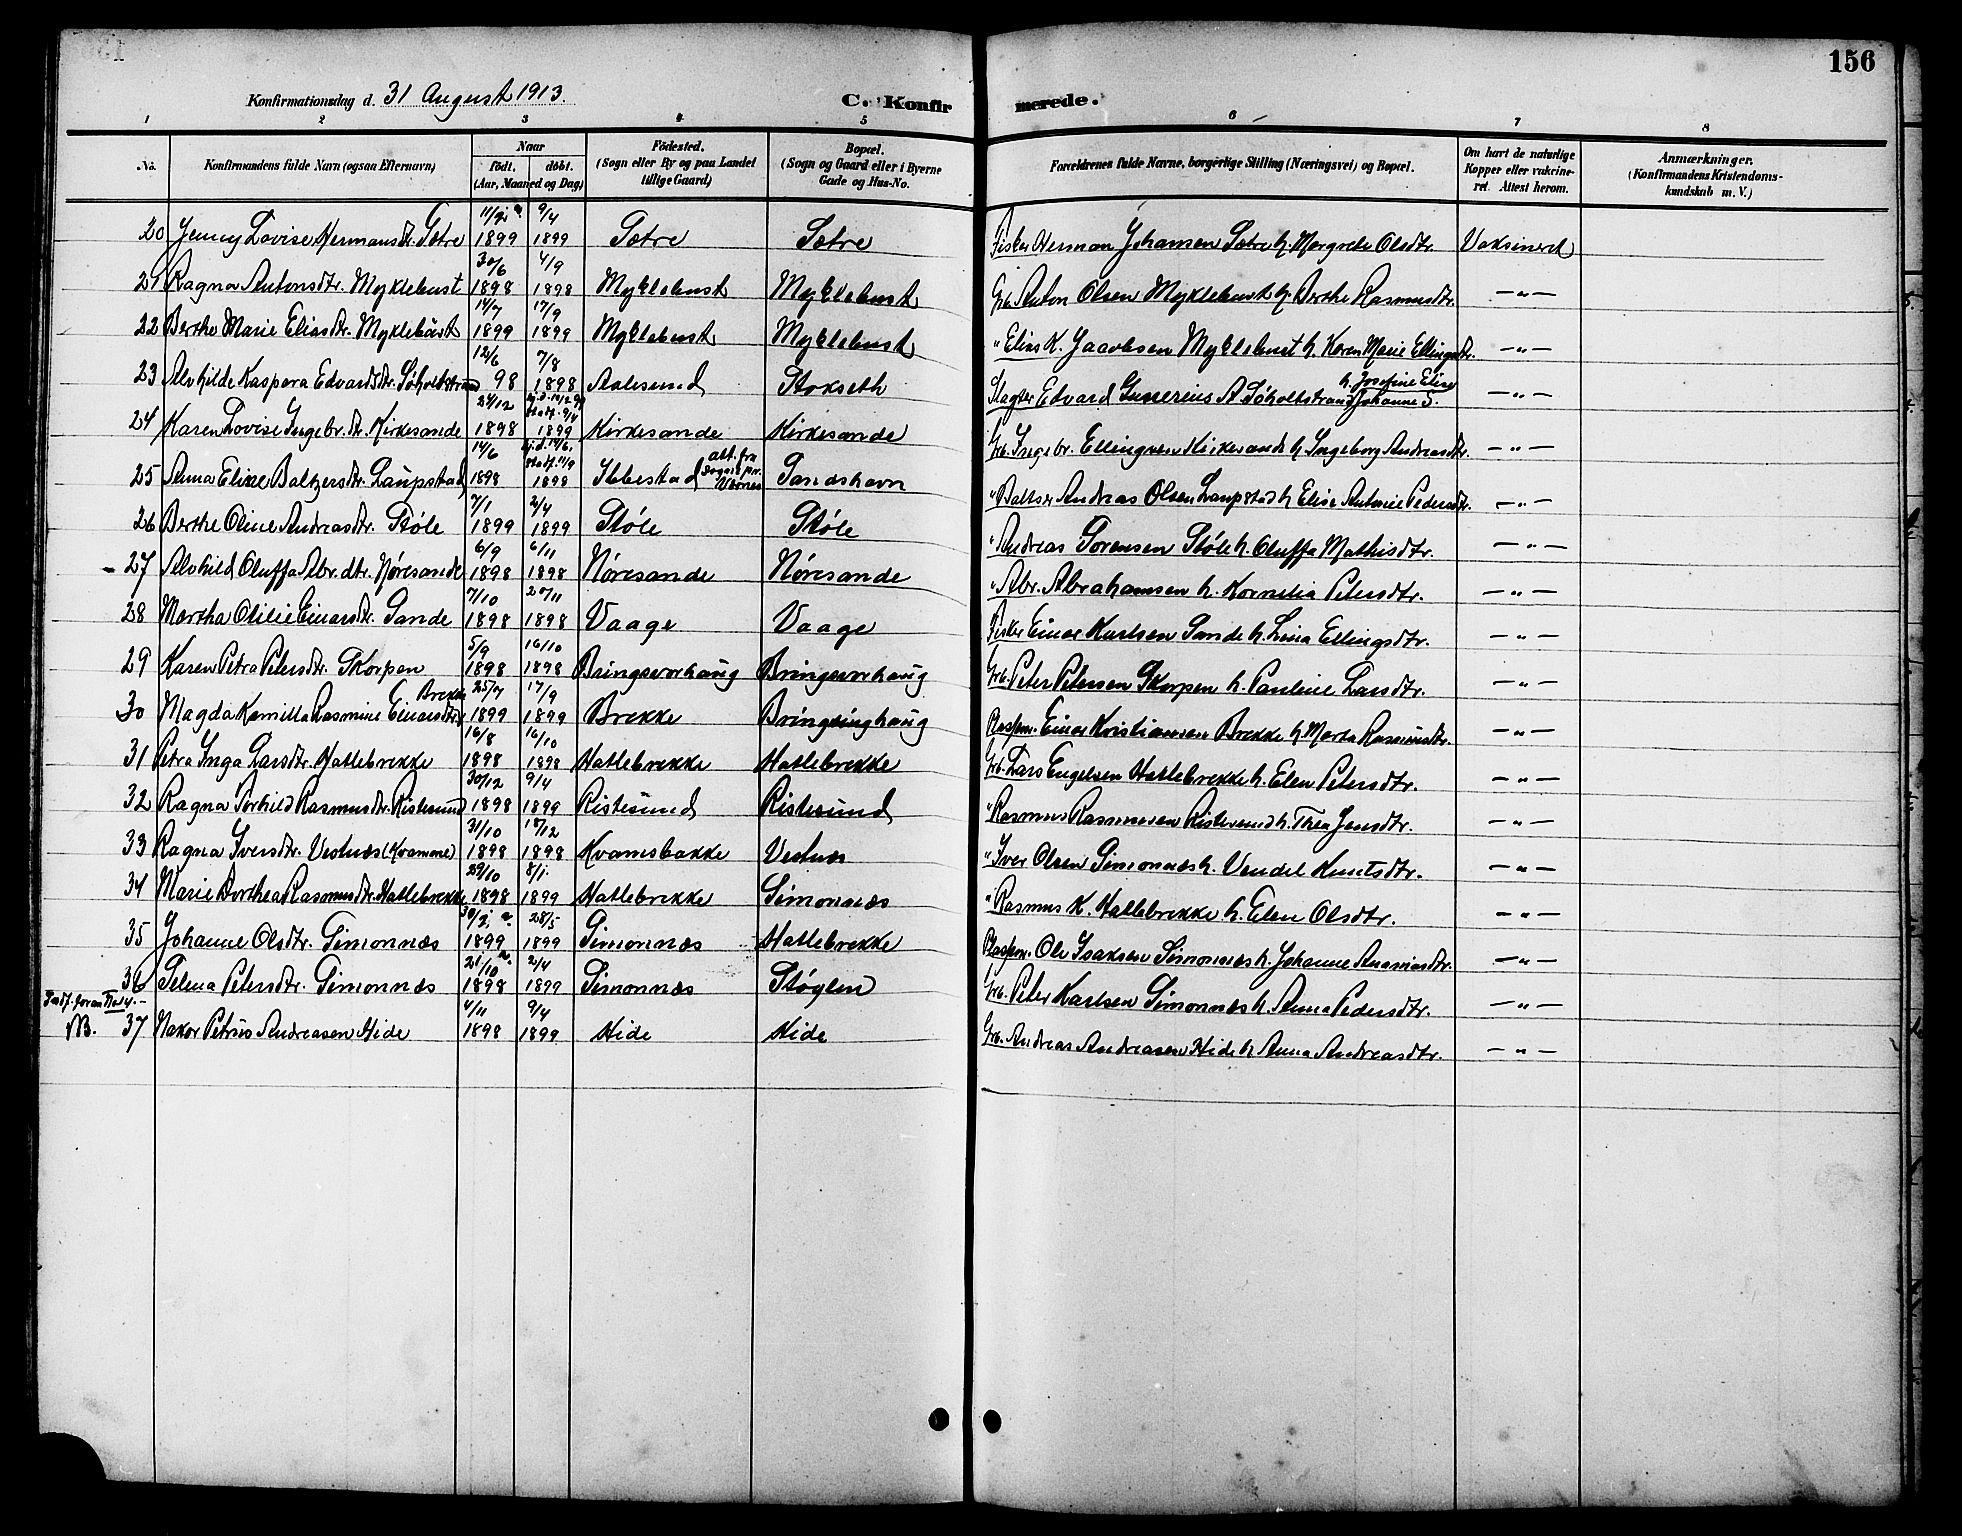 156
Konfirmationsdag d. 31 August 1913.
C. Konfirmerede.
1 2 3 4 5 6 7 8
No.
Konfirmandens fulde Navn (ogsaa Efternavn)
Naar
födt. döbt.
(Aar, Maaned og Dag)
Födested.
(Sogn eller By og paa Landet
tillige Gaard)
Bopæl.
(Sogn og Gaard eller i Byerne
Gade og Hus-No.
Forældrenes fulde Navne, borgerlige Stilling (Næringsvei) og Bopæl.
Om havt de naturlige
Kopper eller vakcine-
ret. Attest herom.
Anmærkninger.
(Konfirmandens Kristendoms-
kundskab m. V.)
20 Jenny Lovise Hermansdtr. Sætre 1899 9/4 1899 Sætre Sætre Fisker Herman Johansen Sætre h. Margrete Olsdtr. Vaksineret
21 Ragna Antonsdtr. Myklebust 30/6 1898 4/9 1898 Myklebust Myklebust Grb. Anton Olsen Myklebust h. Berthe Rasmusdtr. —"—
22 Berthe Marie Eliasdtr. Myklebust 14/7 1899 17/9 1899 Myklebust Myklebust " Elias K. Jacobsen Myklebust h. Karen Marie Ellingsdtr. —"—
23 Alvhilde Kaspara Edvardsdtr. Søholtstrand 12/6 98 7/8 1898 Aalesund Stokseth Slagter Edvard Gunerius A. Søholtstrand h. Josefine Elise Johanne S. —"—
24 Karen Lovise Ingebr.dtr. Kirkesande 24/12 1898 stadf. 9/4 1899 Kirkesande Kirkesande Grb. Ingebr. Ellingsen Kirkesande h. Ingeborg Andreasdtr. —"—
25 Anna Elise Baltzersdtr. Laupstad 14/6 1898 stadf. 11/9 1898 Ibbestad att. fra Sognepr. Sandshavn " Baltser Andreas Olsen Laupstad h. Elise Antonie Pedersdtr. —"—
26 Berthe Oline Andreasdtr. Støle 7/1 1899 2/4 1899 Støle Støle " Andreas Sorensen Støle h. Oluffa Mathisdtr. —"—
27 Alvhild Oluffa Abr.dtr. Nøresande 6/9 1898 6/11 1898 Nøresande Nøresande " Abr. Abrahamsen h. Kornelia Petersdtr. —"—
28 Martha Otilie Einarsdtr. Sande 7/10 1898 20/11 1898 Vaage Vaage Fisker Einar Karlsen Sande h. Lina Ellingsdtr. —"—
29 Karen Petra Petersdtr. Skorpen 5/9 1898 16/10 1898 Bringsvorhaug Bringsvorhaug Grb. Peter Petersen Skorpen h. Pauline Larsdtr. —"—
30 Magda Kamilla Rasmine Einarsdtr. Brekke 25/7 1899 17/9 1899 Brekke Bringsinghaug Plasm. Einar Kristiansen Brekke h. Marta Rasmusdtr. —"—
31 Petra Inga Larsdtr. Hatlebrekke 16/8 1898 16/10 1898 Hatlebrekke Hatlebrekke Grb. Lars Engelsen Hatlebrekke h. Elen Petersdtr. —"—
32 Ragna Torhild Rasmusdtr. Ristesund 30/12 1898 9/4 1899 Ristesund Ristesund " Rasmus Rasmussen Ristesund h. Thea Jensdtr. —"—
33 Ragna Iversdtr. Vestnæs 31/10 1898 18/12 1898 Kvamsbakke Vestnæs " Iver Olsen Simonnæs h. Vendel Knutsdtr. —"—
34 Marie Dorthea Rasmusdtr. Hatlebrekke 29/10 1898 8/1 1899 Hatlebrekke Simonnæs " Rasmus K. Hatlebrekke h. Elen Olsdtr. —"—
35 Johanne Olsdtr. Simonnæs 1899 28/5 1899 Simonnæs Hatlebrekke Plasm. Ole Isaksen Simonnæs h. Johanne Ananiasdtr. —"—
36 Selma Petersdtr. Simonnæs 21/10 1898 2/4 1899 Simonnæs Støylen Grb. Peter Karlsen Simonnæs h. Anna Pedersdtr. —"—
NB. 37 Nakor Petrus Andreasen Hide 4/11 1898 9/4 1899 Hide Hide Grb. Andreas Andreasen Hide h. Anna Andreasdtr. —"—